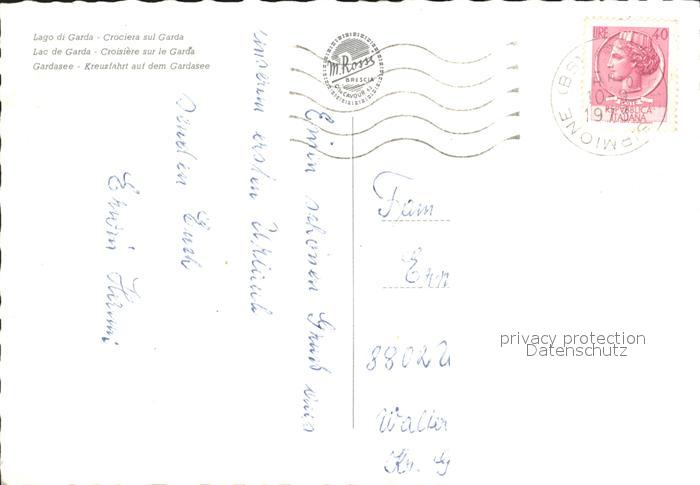 Lago di Garda - Crociera sul Garda
Lac de Garda - Croisière sur le Garda
Gardasee - Kreuzfahrt auf dem Gardasee
M. Rossi
BRESCIA
LIRE 40
REPUBBLICA
ITALIANA
SIRMIONE (BS)
Einen schönen Gruß aus
unserm ersten Urlaub
senden Euch
Erwin Hermi
Fam
8802
privacy protection
Datenschutz